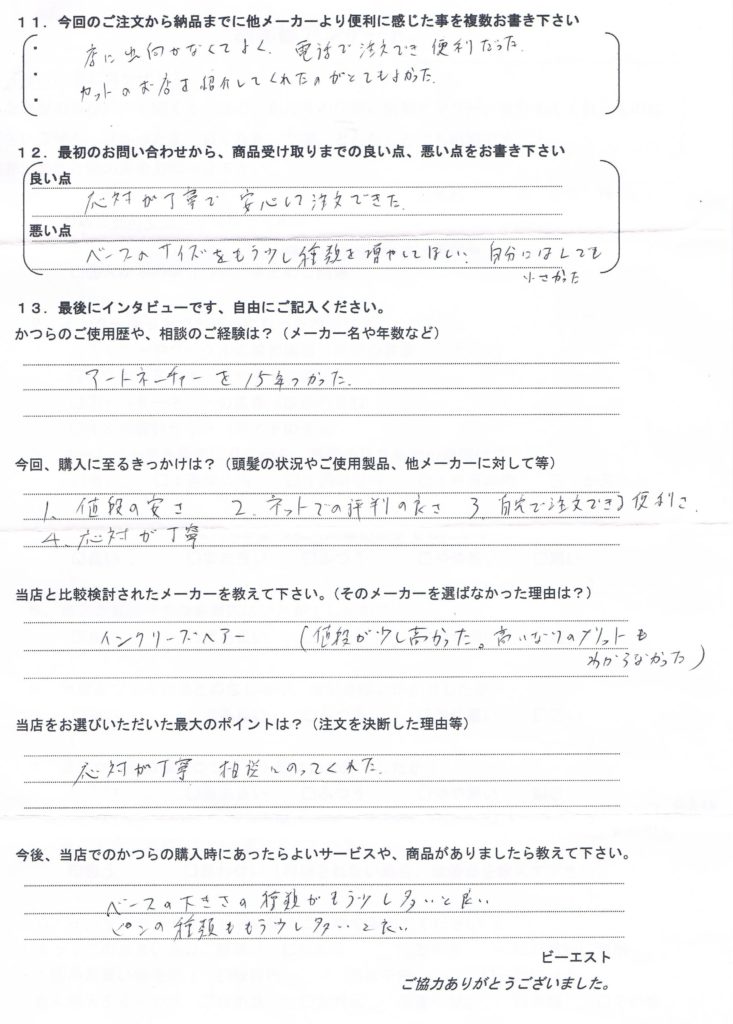 11．今回のご注文から納品までに他メーカーより便利に感じた事を複数お書き下さい
・ 店に出向かなくてよく、電話で注文でき 便利だった。
・ カットのお店を紹介してくれたのがとてもよかった。
・
12．最初のお問い合わせから、商品受け取りまでの良い点、悪い点をお書き下さい
良い点
応対が丁寧で 安心して注文できた。
悪い点
ベースのサイズをもう少し種類を増やしてほしい、自分にはLでも
小さかった
13．最後にインタビューです、自由にご記入ください。
かつらのご使用歴や、相談のご経験は？（メーカー名や年数など）
アートネーチャーを 15年つかった。
今回、購入に至るきっかけは？（頭髪の状況やご使用製品、他メーカーに対して等）
1、値段の安さ 2、ネットでの評判の良さ 3、自宅で注文できる便利さ、
4、応対が丁寧
当店と比較検討されたメーカーを教えて下さい。（そのメーカーを選ばなかった理由は？）
インクリーズヘアー （値段が少し高かった。高いなりのメリットも
わからなかった）
当店をお選びいただいた最大のポイントは？（注文を決断した理由等）
応対が丁寧 相談にのってくれた。
今後、当店でのかつらの購入時にあったらよいサービスや、商品がありましたら教えて下さい。
ベースの大きさの種類がもう少し多いと良い
ピンの種類ももう少し多いと良い
ビーエスト
ご協力ありがとうございました。